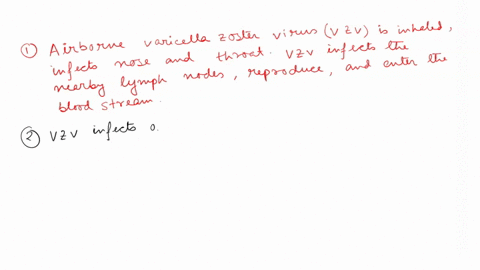 ① Airborne varicella zoster virus (VZV) is inhaled,
infects nose and throat. VZV infects the
nearby lymph nodes, reproduce, and enter the
blood stream.
② VZV infects o.